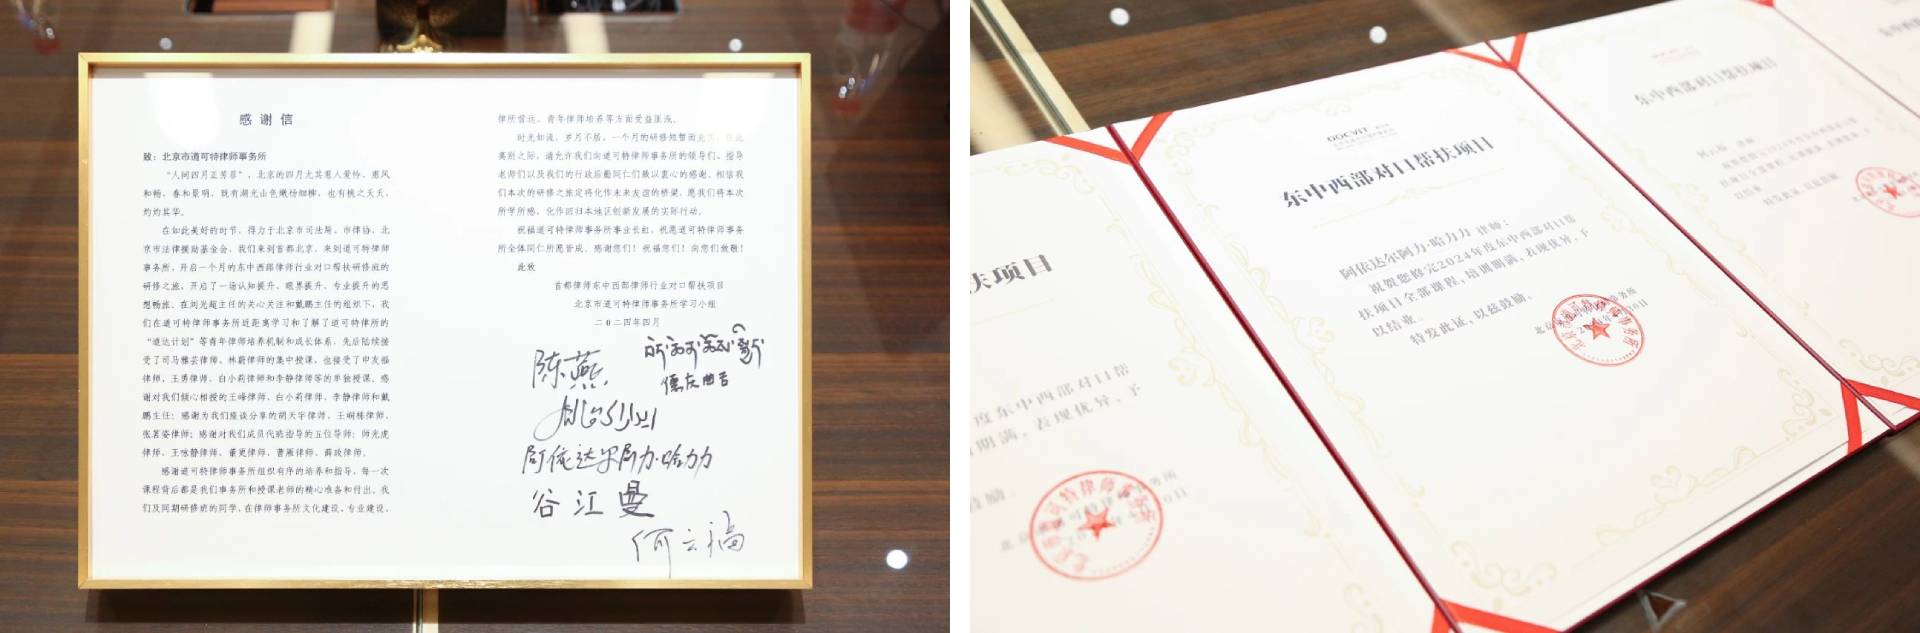 感谢信
致：北京市道可特律师事务所
“人间四月正芳菲”，北京的四月尤其惹人爱怜，惠风
和畅，春和景明，既有湖光山色嫩杨细柳，也有桃之夭夭，
灼灼其华。
在如此美好的时节，得力于北京市司法局、市律协、北
京市法律援助基金会，我们来到首都北京，来到道可特律师
事务所，开启一个月的东中西部律师行业对口帮扶研修班的
研修之旅，开启了一场认知提升、眼界提升、专业提升的思
想畅旅。在刘光超主任的关心关注和戴鹏主任的组织下，我
们在道可特律师事务所近距离学习和了解了道可特律所的
“道达计划”等青年律师培养机制和成长体系，先后陆续接
受了司马雅芸律师、林蔚律师的集中授课，也接受了申友福
律师、王勇律师、白小莉律师和李静律师等的单独授课，感
谢对我们倾心相授的王峰律师、白小莉律师、李静律师和戴
鹏主任；感谢为我们座谈分享的胡天宇律师、王娴栋律师、
张茗姿律师；感谢对我们成员代班指导的五位导师：师光虎
律师、王咏静律师、董更律师、曹雁律师、薛政律师。
感谢道可特律师事务所组织有序的培养和指导，每一次
课程背后都是我们事务所和授课老师的精心准备和付出，我
们及同期研修班的同学，在律师事务所文化建设、专业建设、
律所营运、青年律师培养等方面受益匪浅。
时光如流，岁月不居，一个月的研修短暂而充实，在此
离别之际，请允许我们向道可特律师事务所的领导们、指导
老师们以及我们的行政后勤同仁们致以衷心的感谢，相信我
们本次的研修之旅定将化作未来友谊的桥梁，愿我们将本次
所学所感，化作回归本地区创新发展的实际行动。
祝福道可特律师事务所事业长虹，祝愿道可特律师事务
所全体同仁所愿皆成。感谢您们！祝福您们！向您们致敬！
此致
首都律师东中西部律师行业对口帮扶项目
北京市道可特律师事务所学习小组
二〇二四年四月
陈燕
阿依达尔阿力·哈力力
谷江曼
何云福
扶项目
度东中西部对口帮
期满，表现优异，予
鼓励。
DOCVIT
东中西部对口帮扶项目
阿依达尔阿力·哈力力 律师：
祝贺您修完2024年度东中西部对口帮
扶项目全部课程，培训期满，表现优异，予
以结业。
特发此证，以兹鼓励。
东中西部对口帮扶项目
何云福 律师